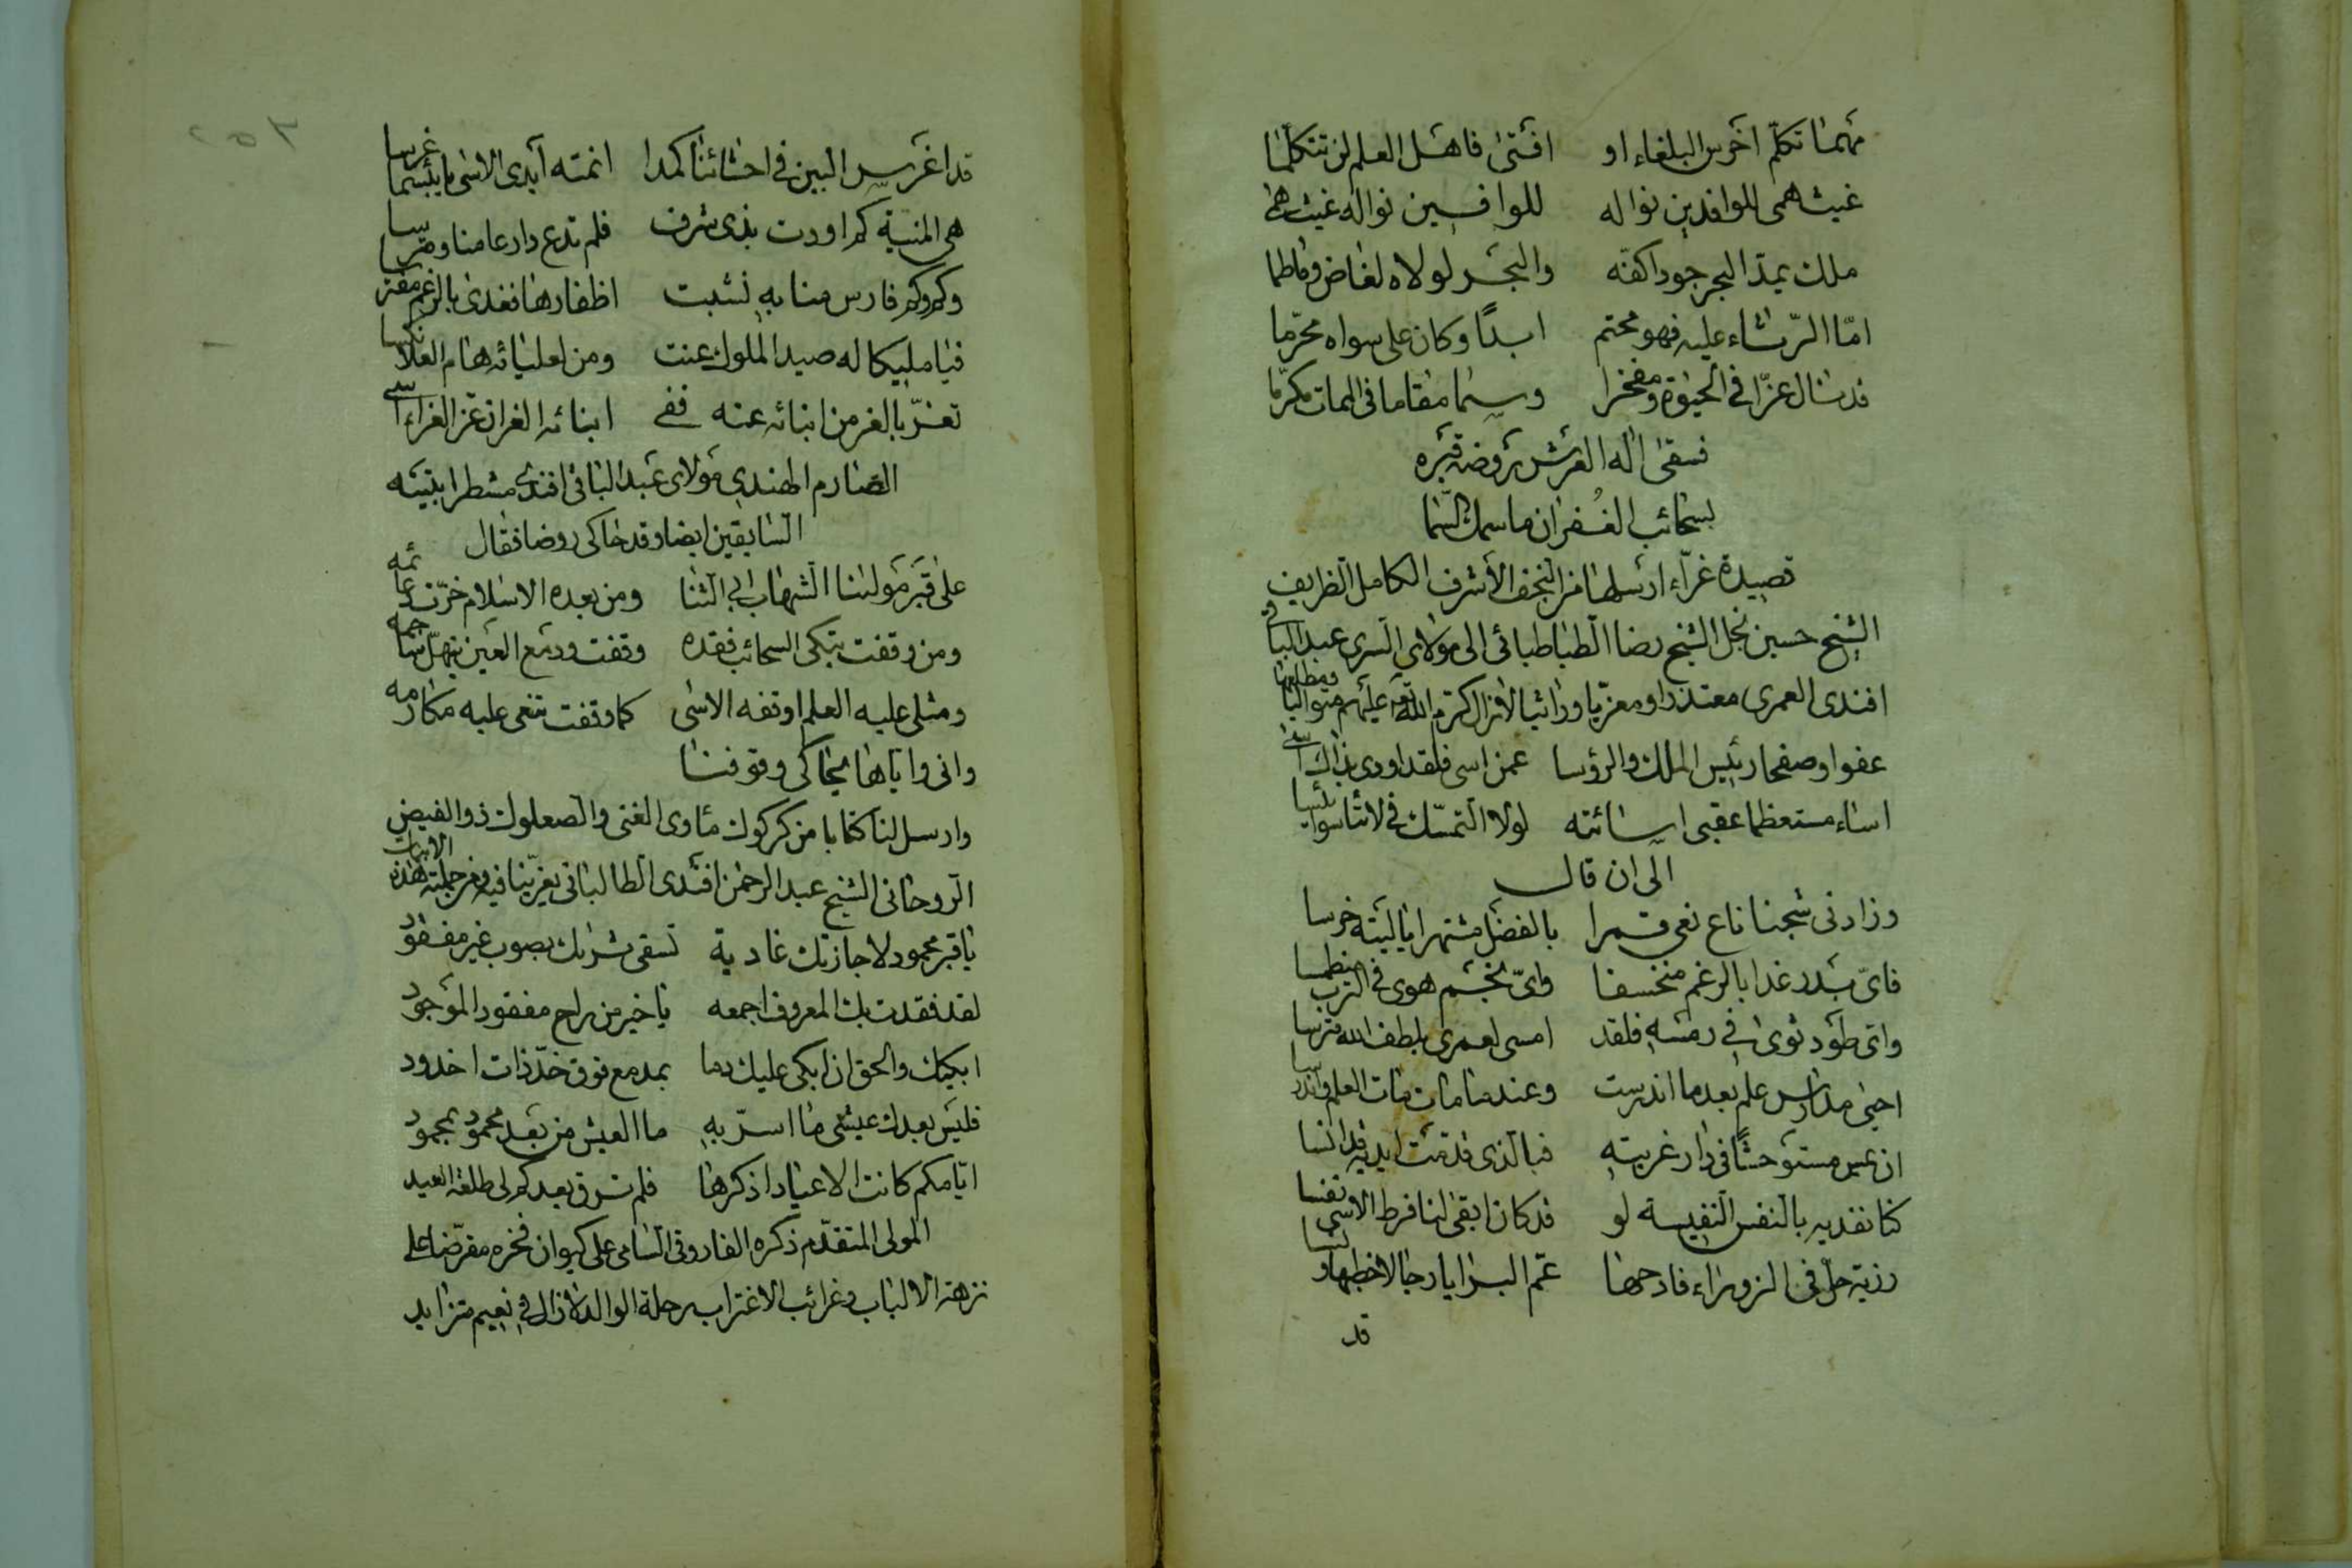 مهما تكلّم اخرس البلغاء او افتى فاهل العلم لن تتكلّما
غيث همى للوافدين نواله للوافدين نواله غيث همى
ملك يمدّ البحر جودا كفّه والبحر لولاه لغاض وما طما
امّا الرّثاء عليه فهو محتم ابدًا وكان على سواه محرّما
قد نال عزّا في الحيوة ومفخرا وسما مقاما في الممات مكرّما
فسقى اله العرش روضة قبره
بسحائب الغفران ما سمك السّما
قصيدة غرّاء ارسلها من النجف الأشرف الكامل الظريف
الشيخ حسين نجل الشيخ رضا الطباطبائى الى مولاى السرى عبد الباقى
افندى العمرى معتذرا ومعزّيا وراثيا لازال كرم الله تعالى عليهم متواليا ومطلعها
عفوا وصفحا رئيس الملك والرؤسا عمن اسى فلقد اودى بذاك اسى
اساء مستعظما عقبى اسائته لولا التمسّك فى لاتيأسوا يئسا
الى ان قال
وزادنى شجنا ناع نعى قمرا بالفضل مشتهرا يا ليته خرسا
فاىّ بدر غدا بالرغم منخسفا واىّ نجم هوى فى الترب منطمسا
واى طود ثوى فى رمسه فلقد امسى لعمرى بلطف الله مترسا
احيى مدارس علم بعد ما اندرست وعندما مات مات العلم واندرسا
ان يمس مستوحشًا فى دار غربته فبالذى قدّمت ايديه قد انسا
كنا نفديه بالنفس النفيسة لو قد كان ابقى لنا فرط الاسى نفسا
رزية حلّ فى الزوراء فادحها عمّ البرايا رجالا خطبها ونسا
قد
قد اغرس البين فى احشائنا كمدا انمته ايدى الاسى يا بئسما غرسا
هى المنيّة كم اودت بذى شرف فلم تدع دارعا منا ومترسا
وكم وكم فارس منا به نشبت اظفارها فغدى بالرغم مفترسا
فيا مليكا له صيد الملوك عنت ومن لعليائه هام العلا نكسا
تعزّ بالغر من ابنائه عنه ففى ابنائه الغر ان عز العزاء اسى
الصارم الهندى مولاى عبد الباقى افندى مشطرا بيتيه
السابقين ايضا وقد حاكى روضا فقال
على قبر مولانا الشهاب ابى الثنا ومن بعده الاسلام خرّت دعائمه
ومن وقفت تبكى السحائب فقده وقفت ودمع العين ينهلّ ساجمه
ومثلى عليه العلم اوقفه الاسى كما وقفت تنعى عليه مكارمه
وانى واياها يحاكى وقوفنا
وارسل لنا كتابا من كركوك مأوى الغنى والصعلوك ذو الفيض
الروحانى الشيخ عبد الرحمن افندى الطالبانى يعزّينا فيه ومن جملته هذه الابيات
يا قبر محمود لا جازتك غادية تسقى ثراك بصوب غير مفقود
لقد فقدت بك المعروف اجمعه يا خير من راح مفقود الموجود
ابكيك والحق ان ابكى عليك دما بمدمع فوق خدّ ذات اخدود
فليس بعدك عيشى ما اسرّ به ما العيش من بعد محمود بمحمود
ايّامكم كانت الاعياد اذكرها فلم ترق بعدكم لى طلعة العيد
المولى المتقدّم ذكره الفاروقى السامى على كيوان فخره مقرّضا على
نزهة الالباب وغرائب الاغتراب رحلة الوالد لازال فى نعيم متزايد